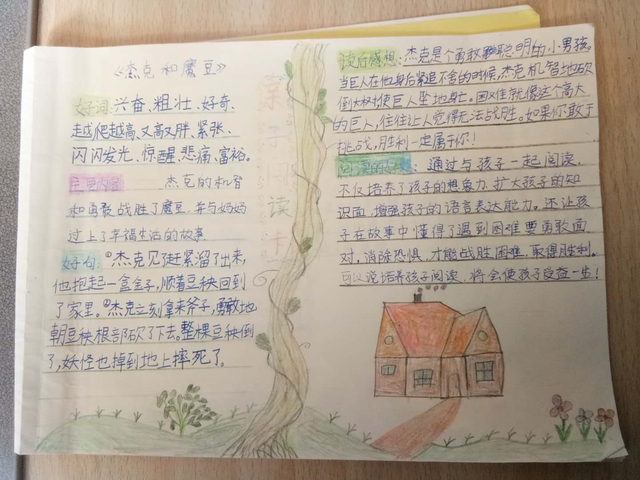 《杰克和魔豆》
好词:兴奋、粗壮、好奇、
越爬越高、又高又胖、紧张、
闪闪发光、惊醒、悲痛、富裕。
主要内容 杰克的机智
和勇敢战胜了魔豆,并与妈妈
过上了幸福生活的故事.
好句:①杰克见赶紧溜了出来,
他抱起一盒金子,顺着豆秧回到
了家里。②杰克立刻拿来斧子,勇敢地
朝豆秧根部砍了下去。整棵豆秧倒
了,妖怪也掉到地上摔死了。
亲子阅读卡
读后感想:杰克是个勇敢聪明的小男孩。
当巨人在他身后紧追不舍的时候,杰克机智地砍
倒大树使巨人坠地身亡。困难就像这个高大
的巨人,往往让人觉得无法战胜。如果你敢于
挑战,胜利一定属于你!
通过与孩子一起阅读,
不仅培养了孩子的想象力,扩大孩子的知
识面,增强孩子的语言表达能力。还让孩
子在故事中懂得了遇到困难要勇敢面
对,消除恐惧,才能战胜困难,取得胜利。
可以说培养孩子阅读,将会使孩子受益一生!